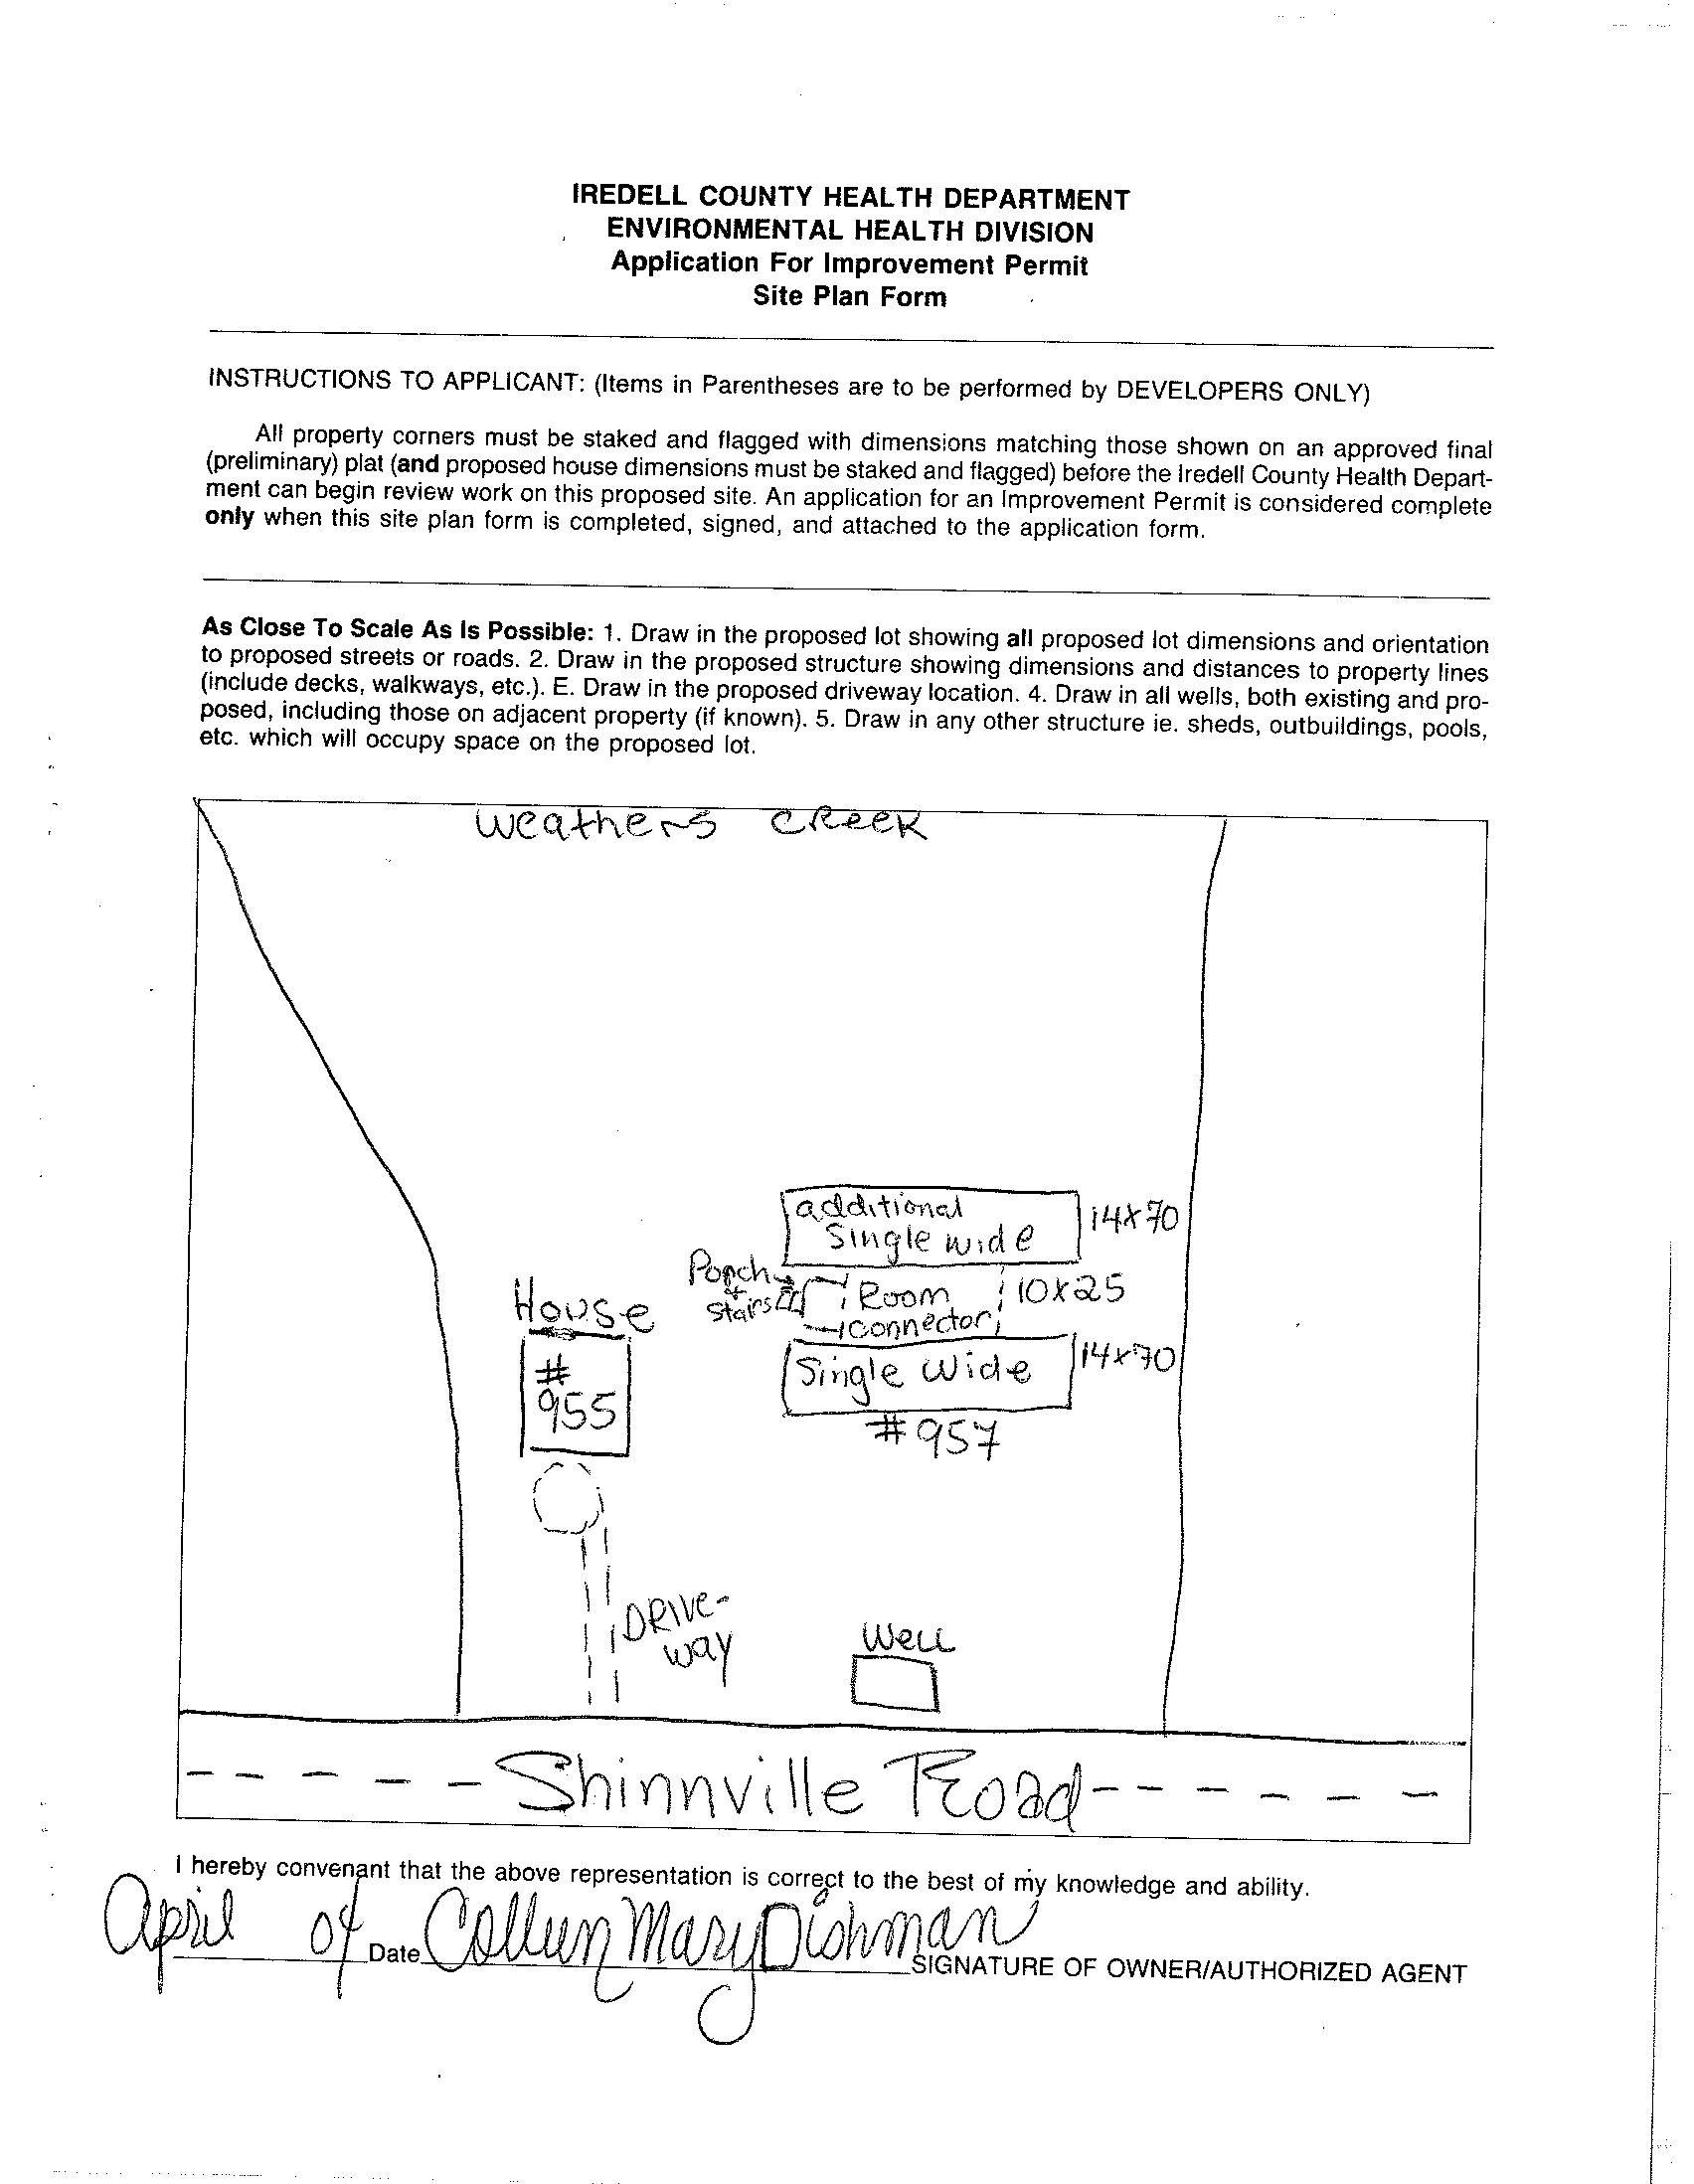 IREDELL COUNTY HEALTH DEPARTMENT
ENVIRONMENTAL HEALTH DIVISION
Application For Improvement Permit
Site Plan Form
INSTRUCTIONS TO APPLICANT: (Items in Parentheses are to be performed by DEVELOPERS ONLY)
All property corners must be staked and flagged with dimensions matching those shown on an approved final
(preliminary) plat (and proposed house dimensions must be staked and flagged) before the Iredell County Health Depart-
ment can begin review work on this proposed site. An application for an Improvement Permit is considered complete
only when this site plan form is completed, signed, and attached to the application form.
As Close To Scale As Is Possible: 1. Draw in the proposed lot showing all proposed lot dimensions and orientation
to proposed streets or roads. 2. Draw in the proposed structure showing dimensions and distances to property lines
(include decks, walkways, etc.). E. Draw in the proposed driveway location. 4. Draw in all wells, both existing and pro-
posed, including those on adjacent property (if known). 5. Draw in any other structure ie. sheds, outbuildings, pools,
etc. which will occupy space on the proposed lot.
Weathers CReeK
additional
Single wide
14x70
Porch
+
Stairs
Room
connector
10x25
House
#
955
Single Wide
14x70
#957
DRive-
way
Well
Shinnville Road
I hereby convenant that the above representation is correct to the best of my knowledge and ability.
April 04 Date Colleen Mary Dishman
SIGNATURE OF OWNER/AUTHORIZED AGENT